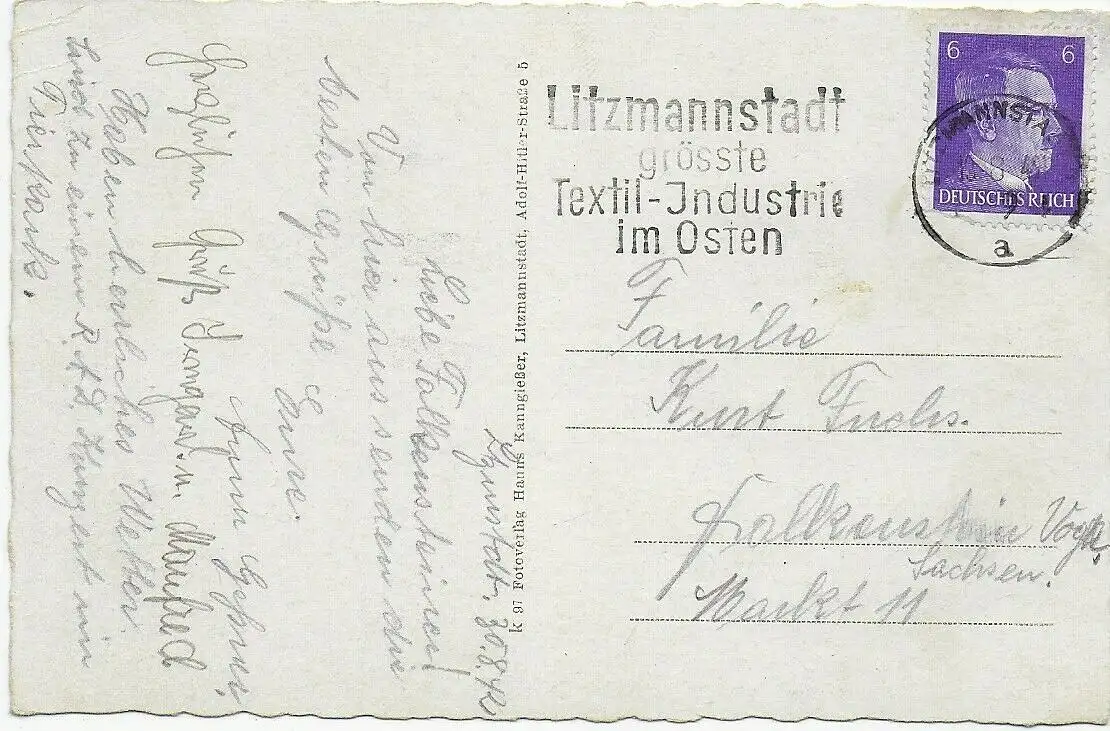 Lzmstdt. 30.8.42
Liebe Falkensteiner!
Von hier aus senden die
besten Grüße Eure.
Gepner,
Herzlichen Gruß Irmgard u. Manfred
Haben herrliches Wetter.
Sind zu einem R.A.D. Konzert im
Tierpark.
K 97 Fotoverlag Hanns Kanngießer, Litzmannstadt, Adolf-Hitler-Straße 5
Litzmannstadt
grösste
Textil-Industrie
im Osten
6 6
DEUTSCHES REICH
LITZMANNSTA
a
Familie
Kurt Fuchs.
Falkenstein Vogtl.
Sachsen.
Markt 11